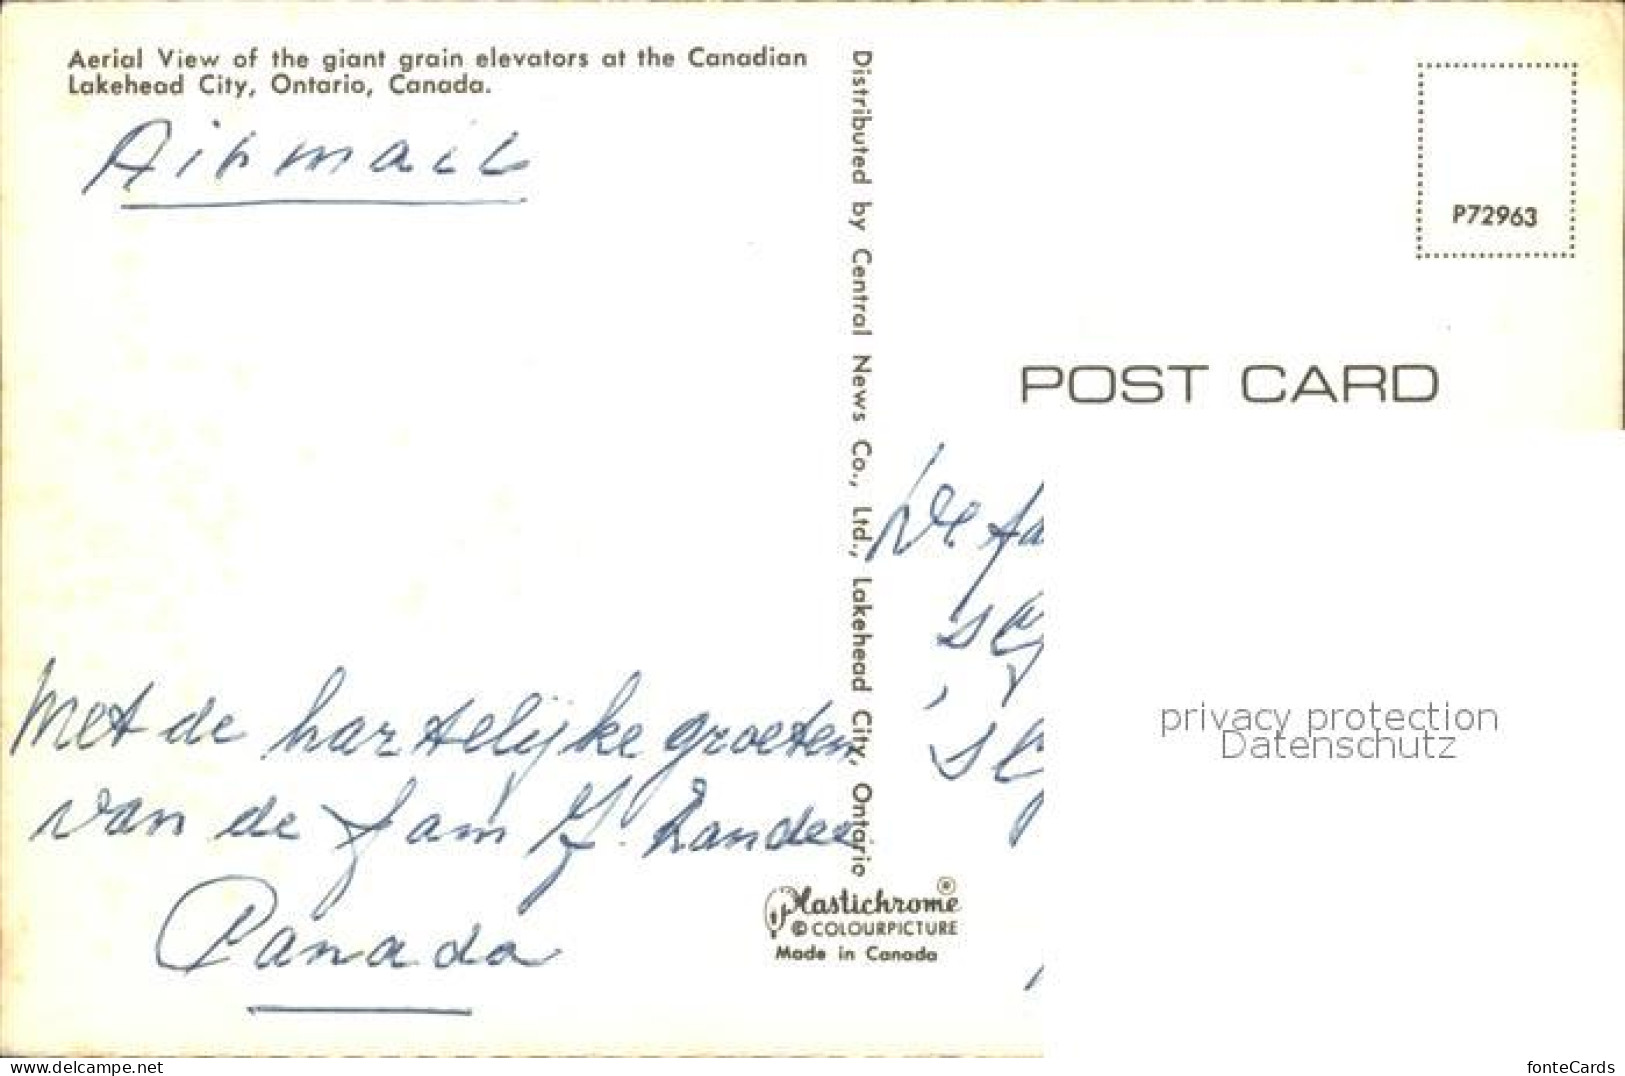 Aerial View of the giant grain elevators at the Canadian
Lakehead City, Ontario, Canada.
Airmail
Met de hartelijke groeten
van de fam
Canada
Distributed by Central News Co., Ltd., Lakehead City, Ontario
Plastichrome ®
© COLOURPICTURE
Made in Canada
P72963
POST CARD
De fa
privacy protection
Datenschutz
www.delcampe.net
fonteCards